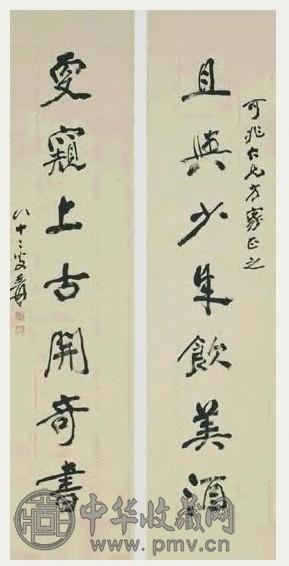 方家正之
且與少年飲美酒
更窺上古開奇書
八十二叟爰
中华收藏网
www.pmv.cn